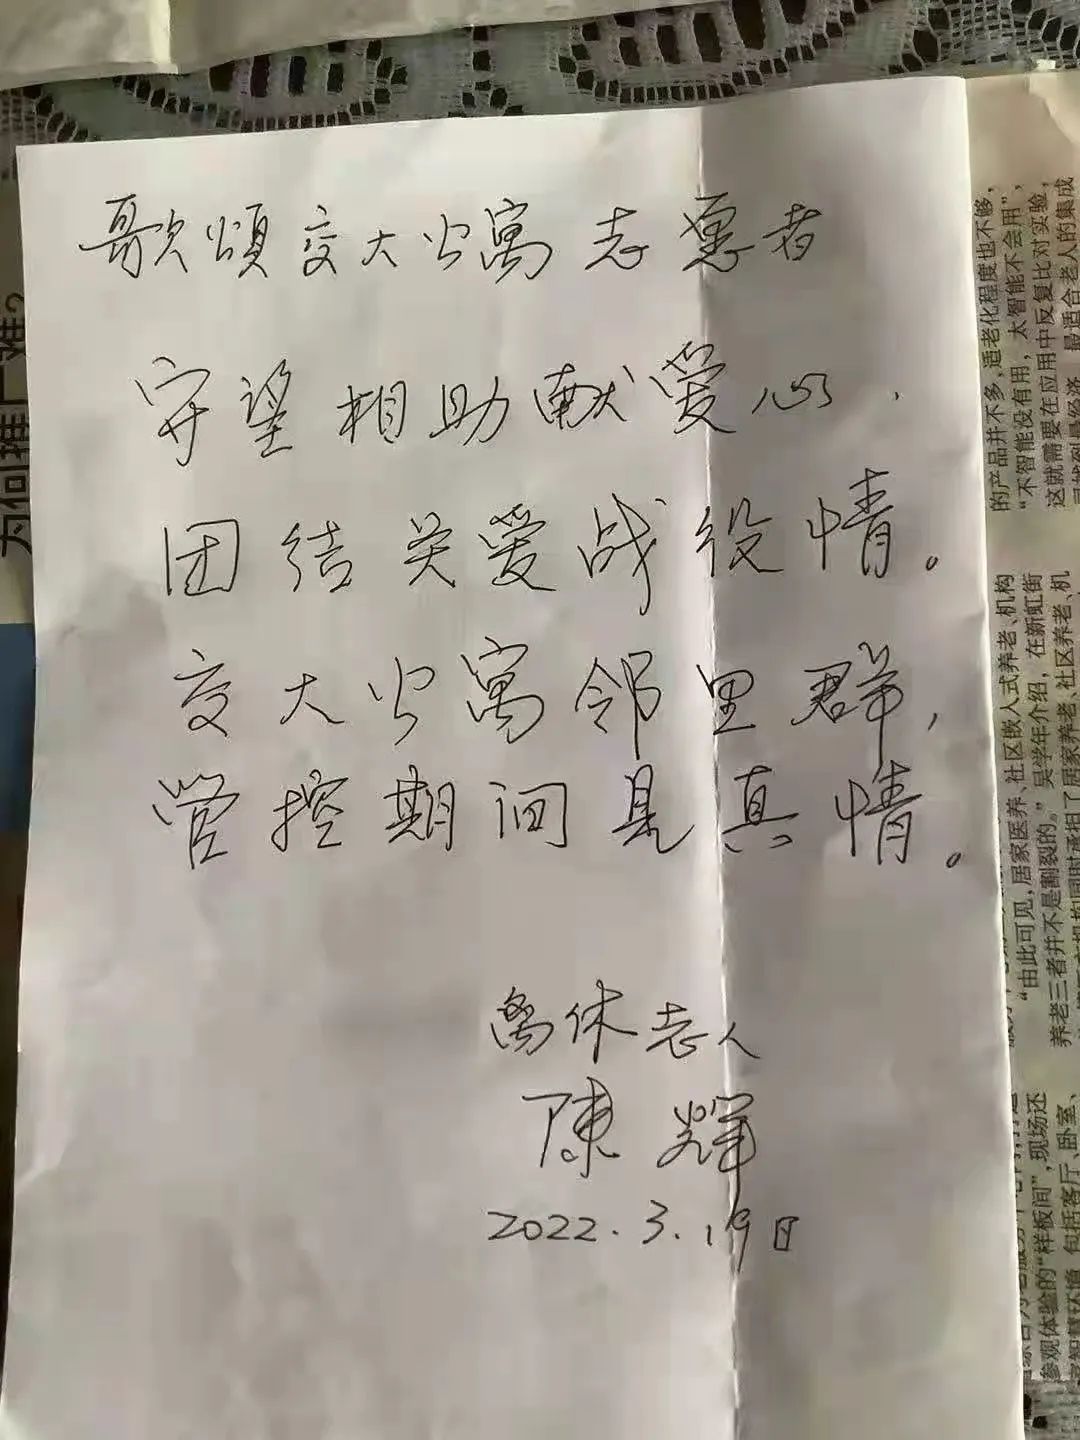 歌颂交大公寓志愿者
守望相助献爱心,
团结关爱战役情。
交大公寓邻里群,
管控期间是真情。
离休老人
陳辉
2022.3.19日
为何推广难?
的产品并不多,适老化程度也不够,
“不智能没有用,太智能不会用”,
这就需要在应用中反复比对实验,
寻找到最经济、最适合老人的集成
“由此可见,居家医养、社区嵌入式养老、机构
养老三者并不是割裂的。”吴学年介绍,在新虹街
参观体验的“样板间”,现场还
包括客厅、卧室、